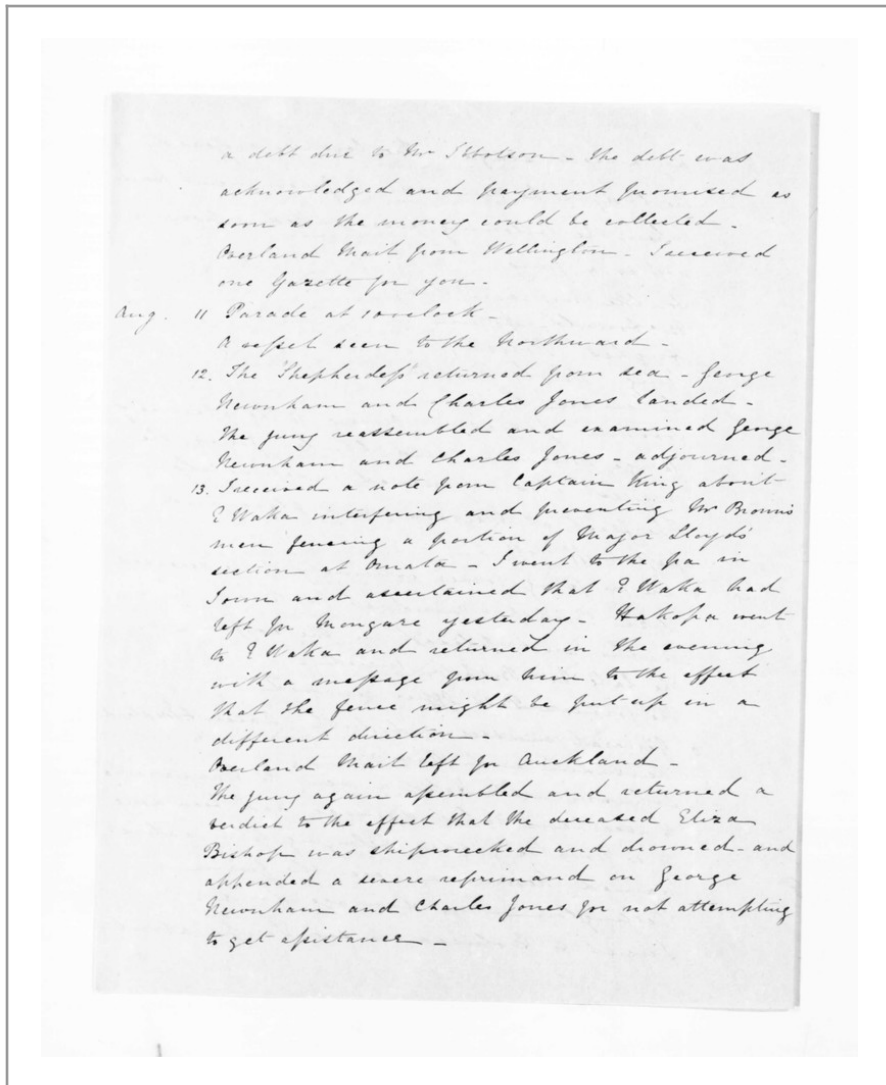 a debt due to Mr Ibbotson - the debt was
acknowledged and payment promised as
soon as the money could be collected -
Overland Mail from Wellington - I received
one Gazette for you -
Aug. 11 Parade at 10 oclock -
A vessel seen to the Northward -
12. The 'Shepherdess' returned from sea - George
Newnham and Charles Jones landed -
The jury reassembled and examined George
Newnham and Charles Jones - adjourned -
13. I received a note from Captain King about
E Waka interfering and preventing Mr Brown's
men fencing a portion of Major Lloyds'
section at Omata - I went to the pa in
Town and ascertained that E Waka had
left for Mongare yesterday - Hakopa went
to E Waka and returned in the evening
with a message from him to the effect
that the fence might be put up in a
different direction -
Overland Mail left for Auckland -
The jury again assembled and returned a
verdict to the effect that the deceased Eliza
Bishop was shipwrecked and drowned - and
appended a severe reprimand on George
Newnham and Charles Jones for not attempting
to get assistance -